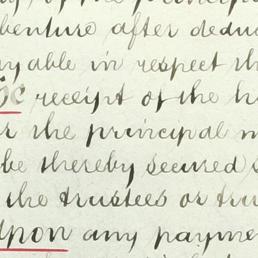 benture after deduc
yable in respect th
receipt of the h
r the principal m
be thereby secured
the trustees or tru
upon any payme